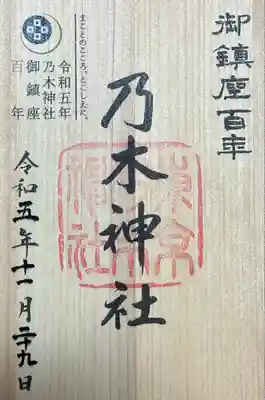 御鎮座百年
まことのこころ、とこしえに。
令和五年
乃木神社
御鎮座
百年
乃木神社
令和五年十一月二十九日